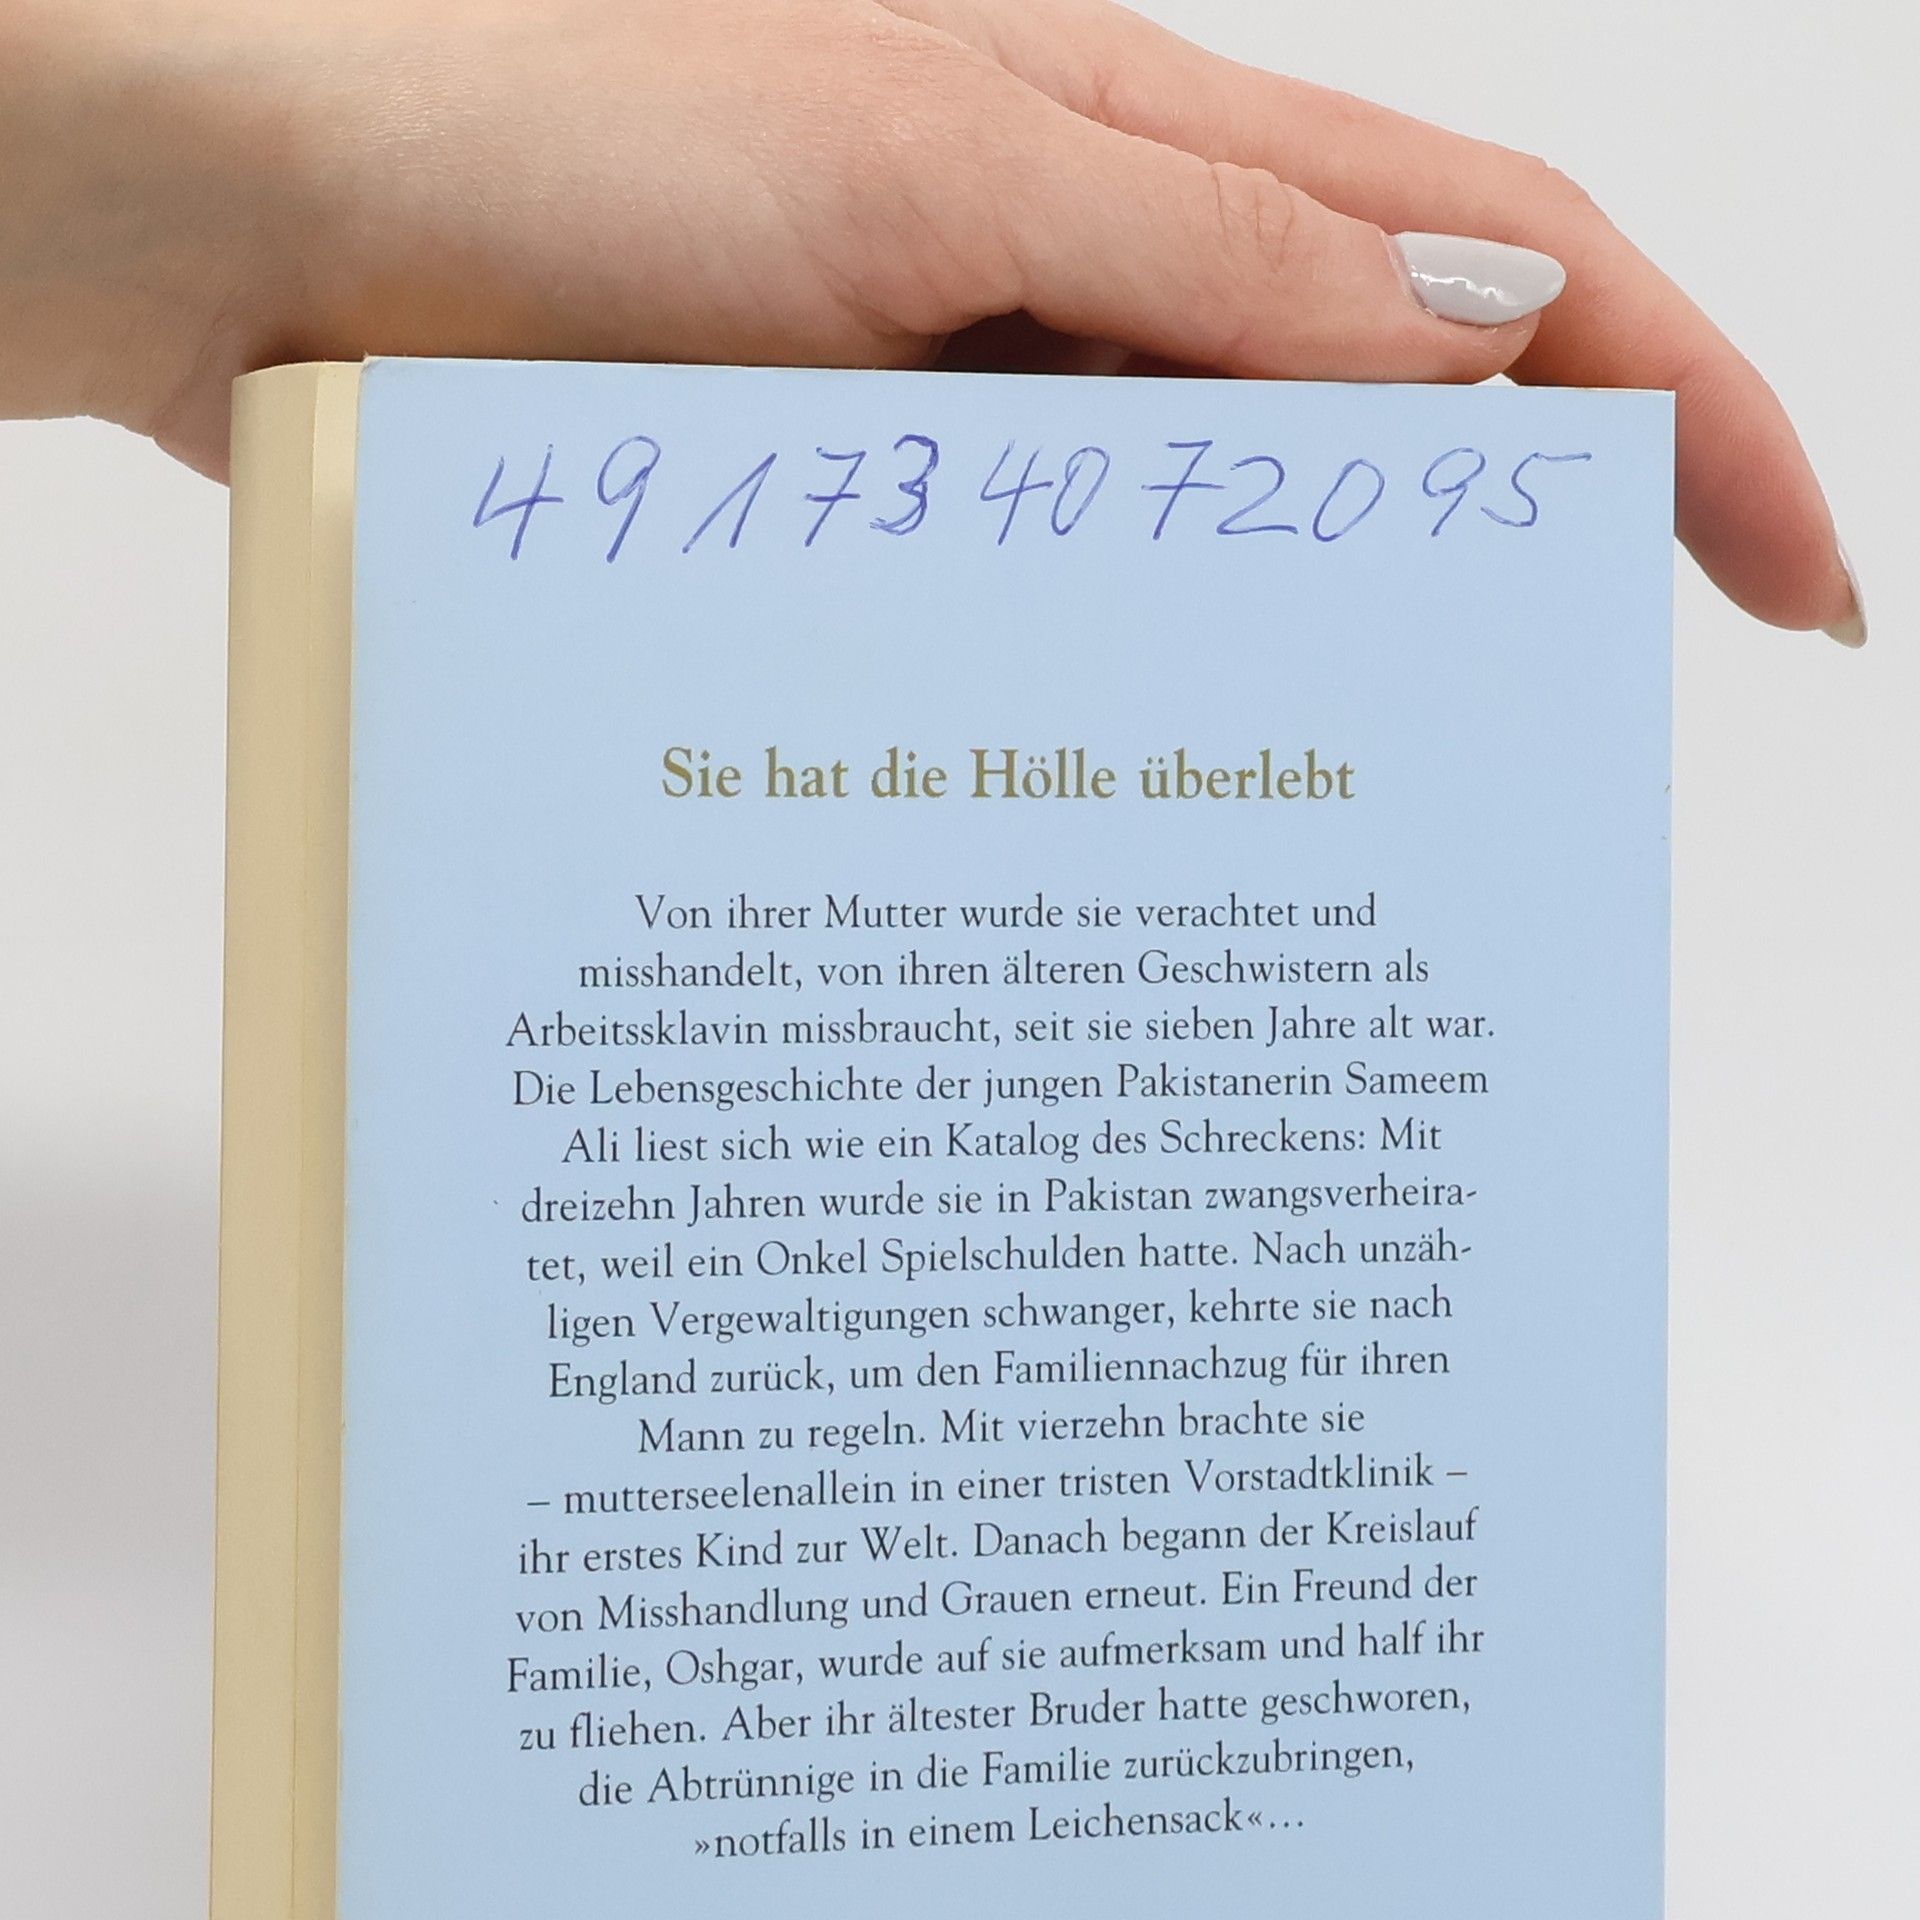 49 173 40 72095
Sie hat die Hölle überlebt
Von ihrer Mutter wurde sie verachtet und
misshandelt, von ihren älteren Geschwistern als
Arbeitssklavin missbraucht, seit sie sieben Jahre alt war.
Die Lebensgeschichte der jungen Pakistanerin Sameem
Ali liest sich wie ein Katalog des Schreckens: Mit
dreizehn Jahren wurde sie in Pakistan zwangsverheira-
tet, weil ein Onkel Spielschulden hatte. Nach unzäh-
ligen Vergewaltigungen schwanger, kehrte sie nach
England zurück, um den Familiennachzug für ihren
Mann zu regeln. Mit vierzehn brachte sie
– mutterseelenallein in einer tristen Vorstadtklinik –
ihr erstes Kind zur Welt. Danach begann der Kreislauf
von Misshandlung und Grauen erneut. Ein Freund der
Familie, Oshgar, wurde auf sie aufmerksam und half ihr
zu fliehen. Aber ihr ältester Bruder hatte geschworen,
die Abtrünnige in die Familie zurückzubringen,
»notfalls in einem Leichensack«…